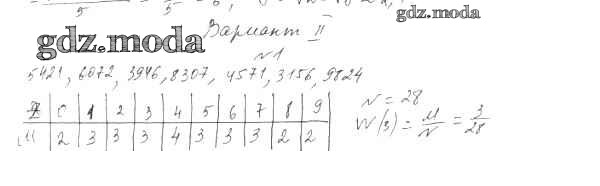 gdz.moda
Вариант II
gdz.moda
№1
5421, 6072, 3946, 8307, 4571, 3156, 9824
X 0 1 2 3 4 5 6 7 8 9
M 2 3 3 3 4 3 3 3 2 2
N = 28
W(3) = M/N = 3/28